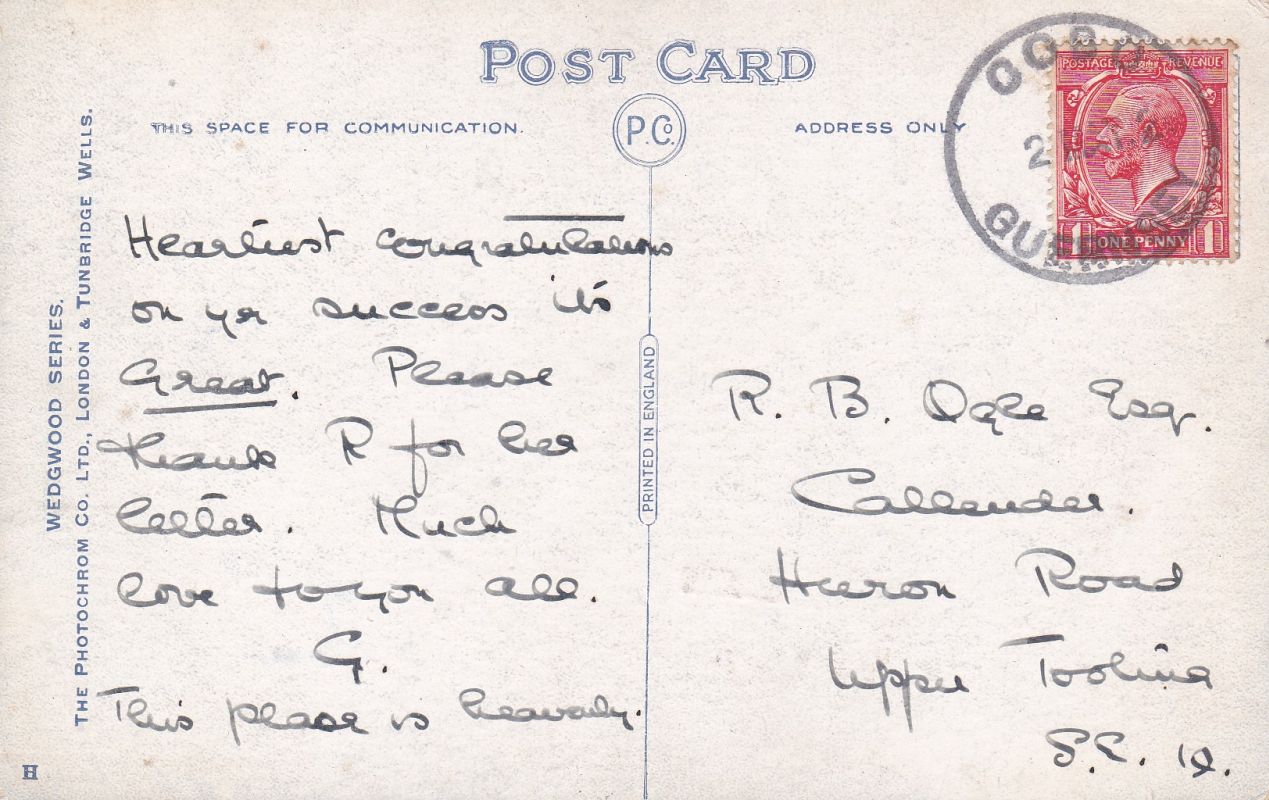 POST CARD
THIS SPACE FOR COMMUNICATION.
P.Co.
ADDRESS ONLY
COBO
GUERNSEY
POSTAGE REVENUE
1 ONE PENNY 1
WEDGWOOD SERIES.
THE PHOTOCHROM CO. LTD., LONDON & TUNBRIDGE WELLS.
PRINTED IN ENGLAND
Heartiest congratulations
on yr success it's
Great. Please
thank R for her
letter. Much
love to you all.
G.
This place is heavenly.
R. B. Ogle Esq.
Callender.
Road
Upper Tooting
H